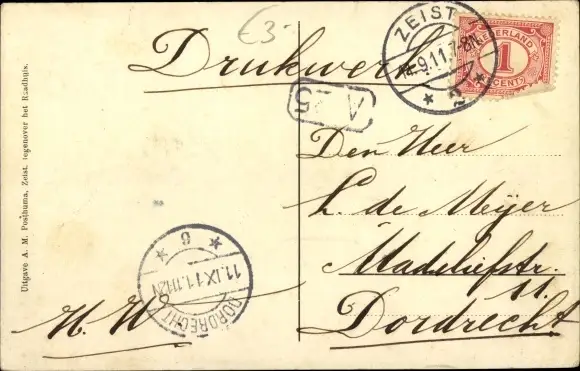 €3-
Drukwerk
ZEIST
9.11.7-8N
2
NEDERLAND
1
CENT
Den Heer
L. de Meijer
Madeliefstr.
11.
Dordrecht
Uitgave A. M. Posthuma, Zeist, tegenover het Raadhuis.
6
11.IX11.11-12V
DORDRECHT
M. W